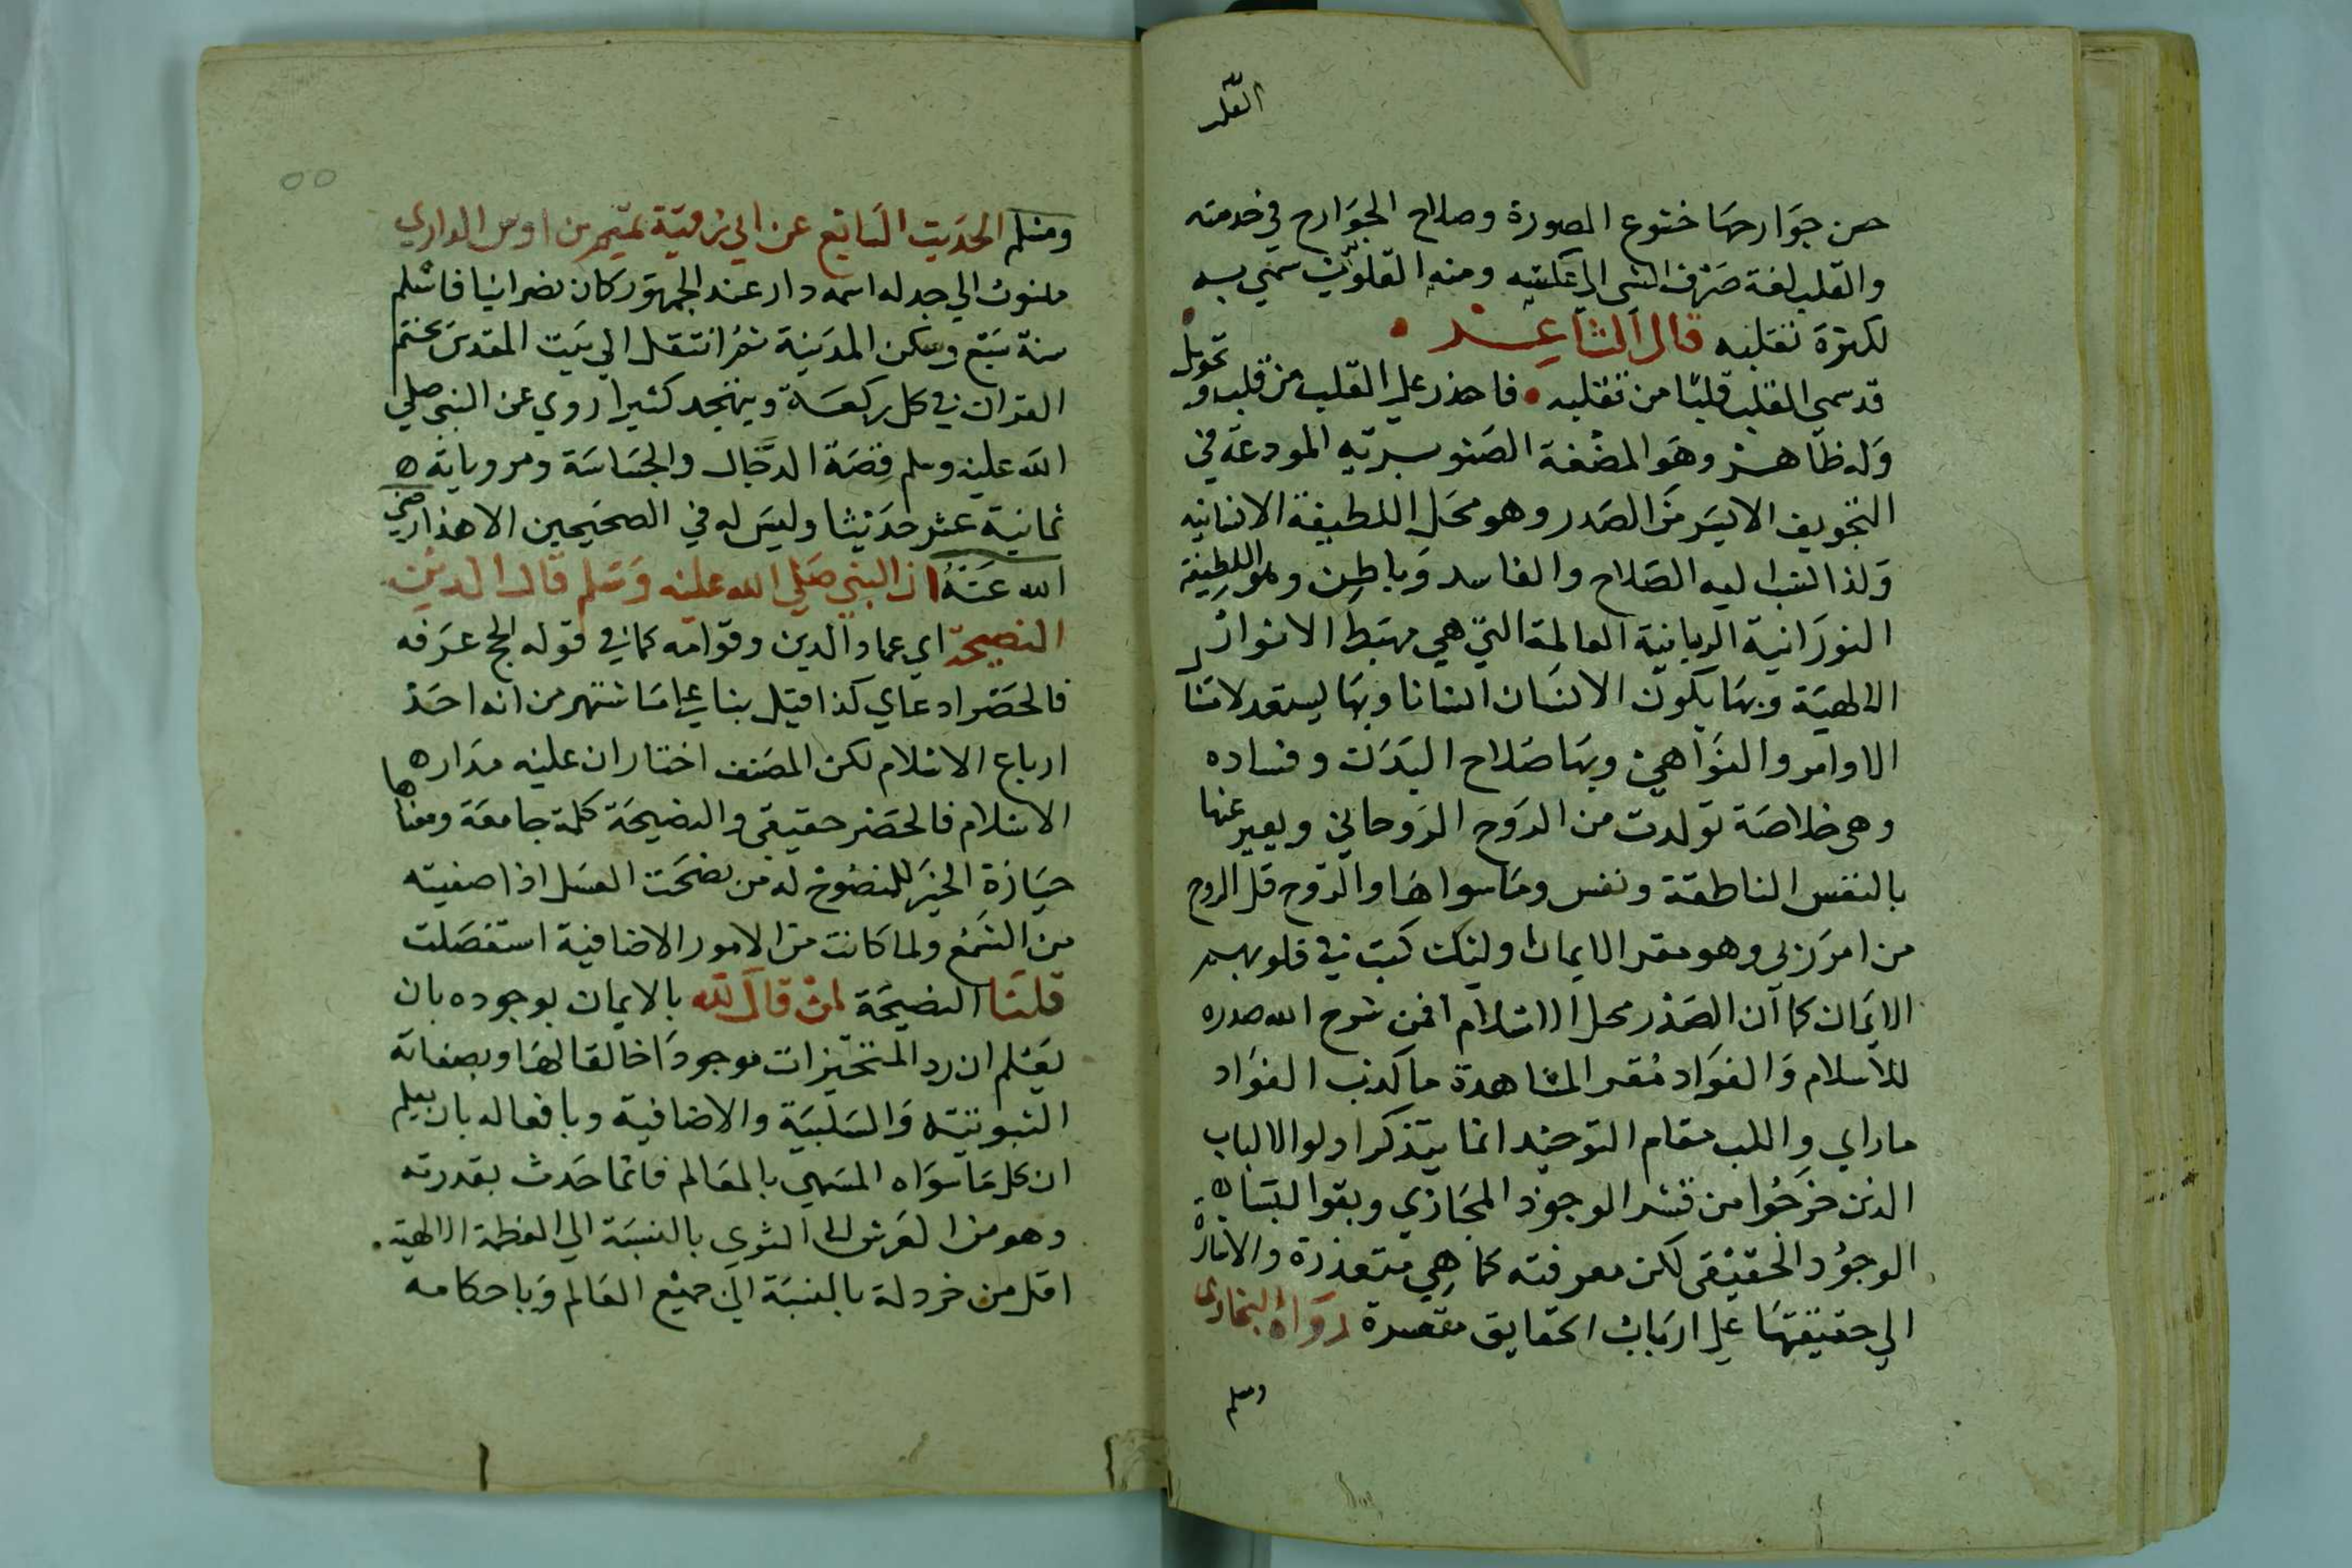 القلب
حسن جوارحها خشوع الصورة وصلاح الجوارح في خدمته
والقلب لغة صرف الشي الي عكسه ومنه القلوب سمي به
لكثرة تقلبه قال الشاعر
قد سمي القلب قلبا من تقلبه • فاحذر علي القلب من قلب وتحويل
وله ظاهر وهو المضغة الصنوبرية المودعة في
التجويف الايسر من الصدر وهو محل اللطيفة الانسانيه
ولذا نسب اليه الصلاح والفاسد وباطن وهو اللطيفة
النورانية الربانية العالمة التي هي مهبط الانوار
الالهية وبها يكون الانسان انسانا وبها يستعد لامتثال
الاوامر والنواهي وبها صلاح البدن وفساده
وهي خلاصة تولدت من الروح الروحاني ويعبر عنها
بالنفس الناطقة ونفس وما سواها والروح قل الروح
من امر ربي وهو مقر الايمان اوليك كتب في قلوبهم
الايمان كما ان الصدر محل الاسلام افمن شرح الله صدره
للاسلام والفواد مقر المشاهدة ما كذب الفواد
ما راي واللب مقام التوحيد انما يتذكر اولوا الالباب
الذين خرجوا من قشر الوجود المجازي وبقوا بلباب
الوجود الحقيقي لكن معرفته كما هي متعذرة والاشارة
الي حقيقتها علي ارباب الحقايق متعسرة رواه البخاري
ومسلم
ومسلم الحديث السابع عن ابي رقية تميم بن اوس الداري
منسوب الي جد له اسمه دار عند الجمهور كان نصرانيا فاسلم
سنة تسع وسكن المدينة ثم انتقل الي بيت المقدس يختم
القران في كل ركعة ويتهجد كثيرا روي عن النبي صلي
الله عليه وسلم قصة الدجال والجساسة ومروياته
ثمانية عشر حديثا وليس له في الصحيحين الا هذا رضي
الله عنه ان النبي صلي الله عليه وسلم قال الدين
النصيحة اي عماد الدين وقوامه كما في قوله الحج عرفه
فالحصر ادعاي كذا قيل بنا علي ما اشتهر من انه احد
ارباع الاسلام لكن المصنف اختار ان عليه مدار
الاسلام فالحصر حقيقي والنصيحة كلمة جامعة ومعناها
حيازة الخير للمنصوح له من نصحت العسل اذا صفيته
من الشمع ولما كانت من الامور الاضافية استفصلت
قلنا النصيحة لمن قال لله بالايمان بوجوده بان
يعلم ان المتحيزات موجودا خالقا لها وبصفاته
الثبوتيه والسلبية والاضافية وبافعاله بان يعلم
ان كل ما سواه المسمي بالعالم فانما حدث بقدرته
وهو من العرش الي الثري بالنسبة الي العظمة الالهية
اقل من خردلة بالنسبة الي جميع العالم وباحكامه